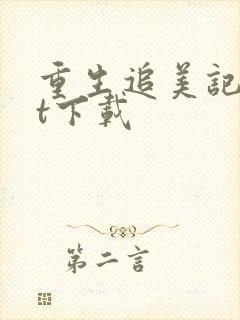 重生追美記
t下載
第二言